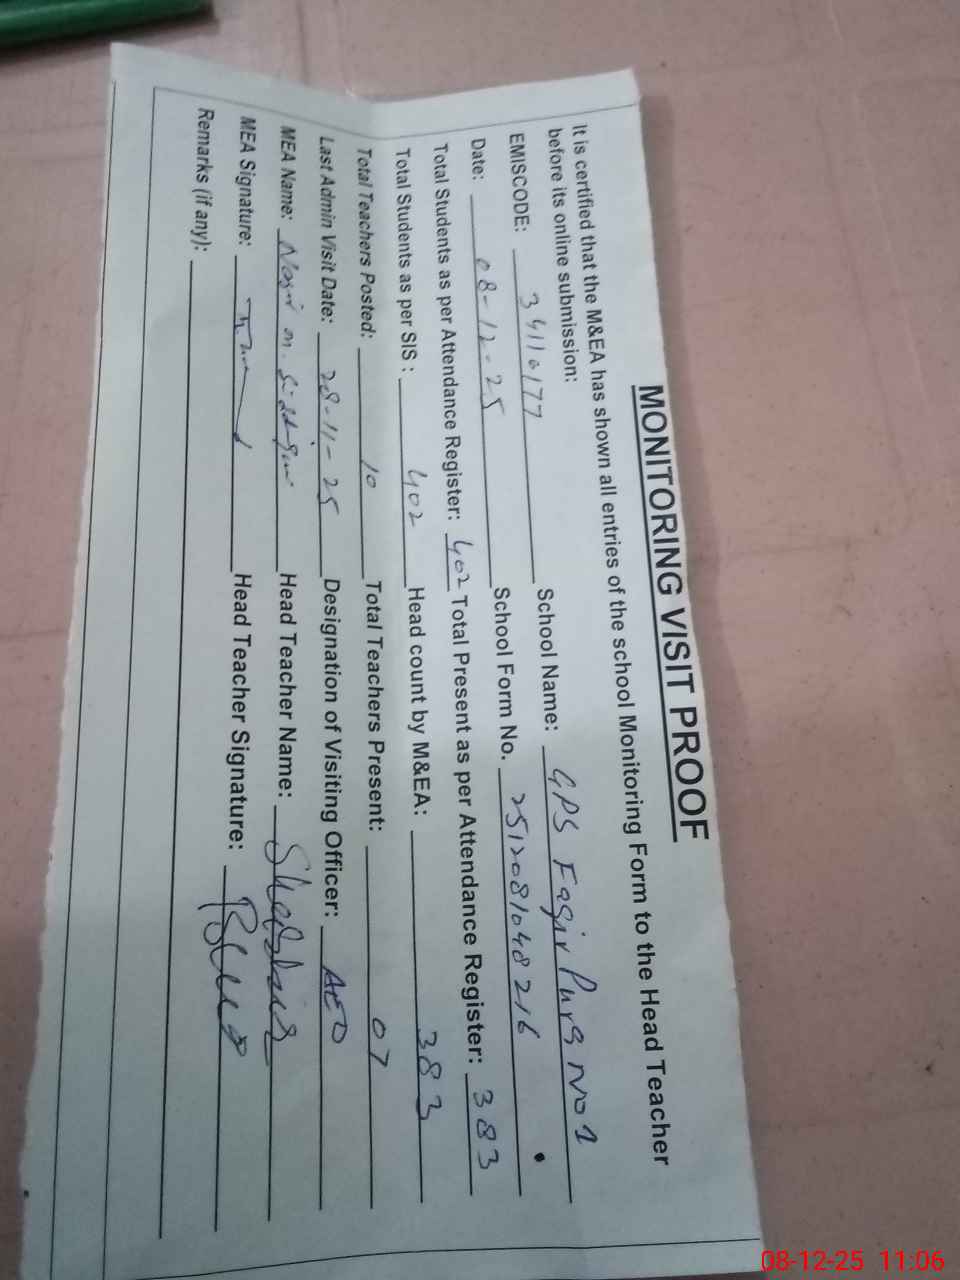 MONITORING VISIT PROOF
It is certified that the M&EA has shown all entries of the school Monitoring Form to the Head Teacher
before its online submission:
EMISCODE: 34110177 School Name: GPS Faqir Pura No 1
Date: 08-12-25 School Form No. 2512081048216
Total Students as per Attendance Register: 402 Total Present as per Attendance Register: 383
Total Students as per SIS : 402 Head count by M&EA: 383
Total Teachers Posted: 10 Total Teachers Present: 07
Last Admin Visit Date: 28-11-25 Designation of Visiting Officer: AEO
MEA Name: Nasir m. Siddqui Head Teacher Name:
MEA Signature: Head Teacher Signature:
Remarks (if any):
08-12-25 11:06